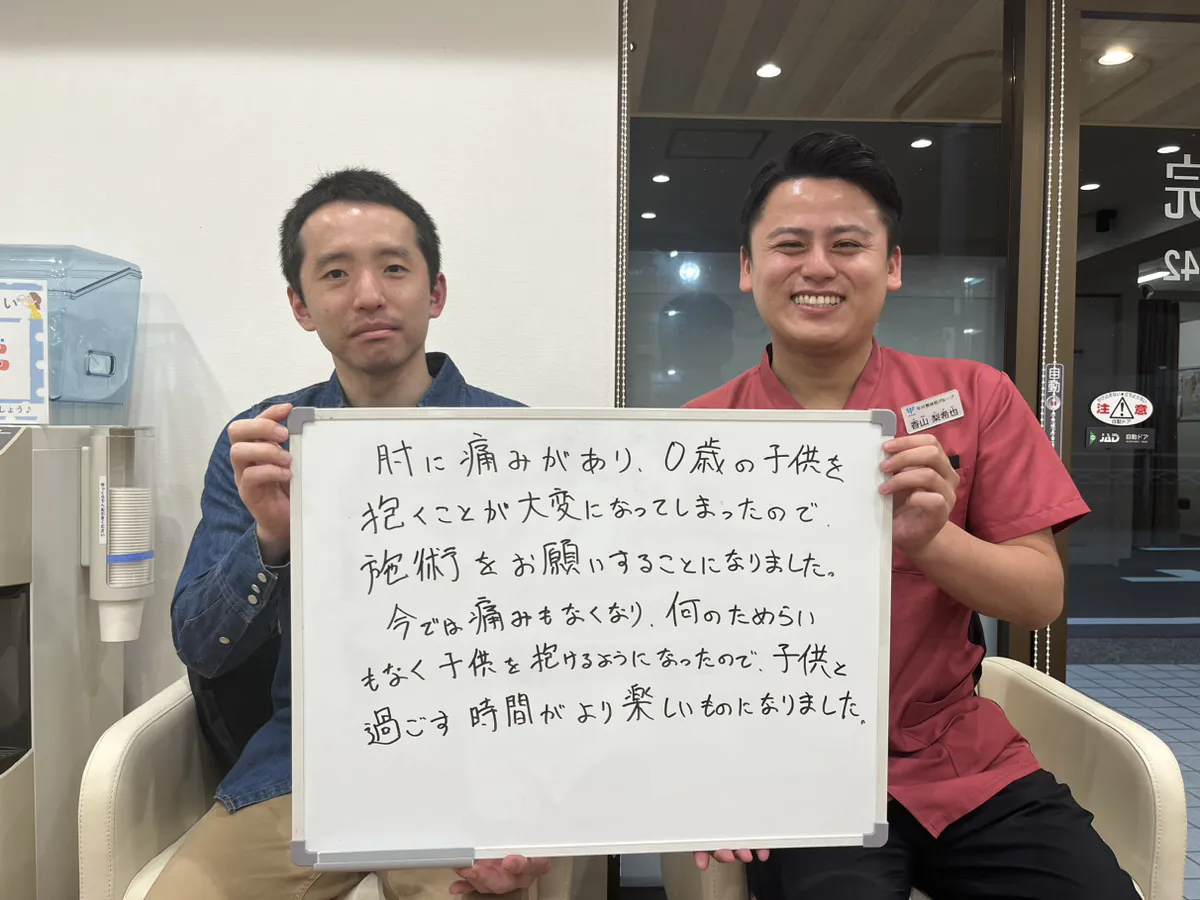 肘に痛みがあり、0歳の子供を
抱くことが大変になってしまったので、
施術をお願いすることになりました。
今では痛みもなくなり、何のためらい
もなく子供を抱けるようになったので、子供と
過ごす時間がより楽しいものになりました。
香山 梨希也
自動
注意
自動ドア
JAD 自動ドア
完
42
い
しょう♪